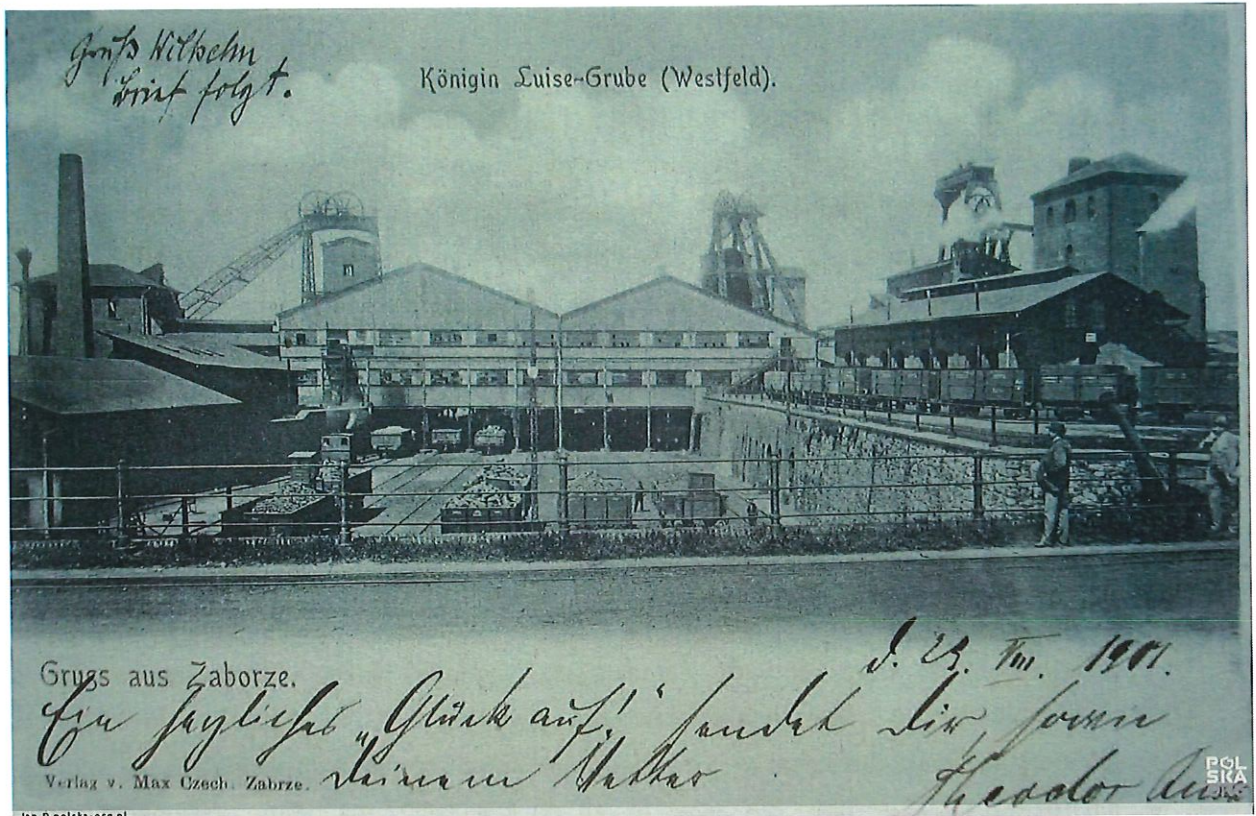 Gruß Wilhelm
Brief folgt.
Königin Luise-Grube (Westfeld).
d. 29. VIII. 1901.
Gruss aus Zaborze.
Ein herzliches „Glück auf!“ sendet Dir, sowie
Deinem Vetter
Verlag v. Max Czech. Zabrze.
Theodor
POL
SKA
.ORG